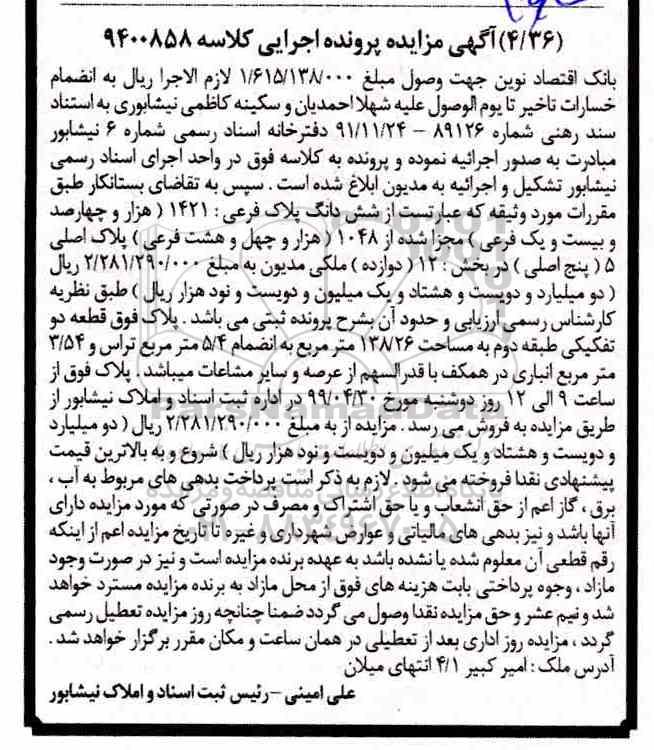 (۴/۳۶)آگهی مزایده پرونده اجرایی کلاسه ۹۴۰۰۸۵۸
بانک اقتصاد نوین جهت وصول مبلغ ۱/۶۱۵/۱۳۸/۰۰۰ لازم الاجرا ریال به انضمام
خسارات تاخیر تا یوم الوصول علیه شهلا احمدیان و سکینه کاظمی نیشابوری به استناد
سند رهنی شماره ۸۹۱۲۶ – ۹۱/۱۱/۲۴ دفترخانه اسناد رسمی شماره ۶ نیشابور
مبادرت به صدور اجرائیه نموده و پرونده به کلاسه فوق در واحد اجرای اسناد رسمی
نیشابور تشکیل و اجرائیه به مدیون ابلاغ شده است . سپس به تقاضای بستانکار طبق
مقررات مورد وثیقه که عبارتست از شش دانگ پلاک فرعی : ۱۴۲۱ ( هزار و چهارصد
و بیست و یک فرعی ) مجزا شده از ۱۰۴۸ ( هزار و چهل و هشت فرعی ) پلاک اصلی
۵ ( پنج اصلی ) در بخش : ۱۲ ( دوازده ) ملکی مدیون به مبلغ ۲/۲۸۱/۲۹۰/۰۰۰ ریال
( دو میلیارد و دویست و هشتاد و یک میلیون و دویست و نود هزار ریال ) طبق نظریه
کارشناس رسمی ارزیابی و حدود آن بشرح پرونده ثبتی می باشد . پلاک فوق قطعه دو
تفکیکی طبقه دوم به مساحت ۱۳۸/۲۶ متر مربع به انضمام ۵/۴ متر مربع تراس و ۳/۵۴
متر مربع انباری در همکف با قدرالسهم از عرصه و سایر مشاعات میباشد . پلاک فوق از
ساعت ۹ الی ۱۲ روز دوشنبه مورخ ۹۹/۰۴/۳۰ در اداره ثبت اسناد و املاک نیشابور از
طریق مزایده به فروش می رسد . مزایده از به مبلغ ۲/۲۸۱/۲۹۰/۰۰۰ ریال ( دو میلیارد
و دویست و هشتاد و یک میلیون و دویست و نود هزار ریال ) شروع و به بالاترین قیمت
پیشنهادی نقدا فروخته می شود . لازم به ذکر است پرداخت بدهی های مربوط به آب ،
برق ، گاز اعم از حق انشعاب و یا حق اشتراک و مصرف در صورتی که مورد مزایده دارای
آنها باشد و نیز بدهی های مالیاتی و عوارض شهرداری و غیره تا تاریخ مزایده اعم از اینکه
رقم قطعی آن معلوم شده یا نشده باشد به عهده برنده مزایده است و نیز در صورت وجود
مازاد ، وجوه پرداختی بابت هزینه های فوق از محل مازاد به برنده مزایده مسترد خواهد
شد و نیم عشر و حق مزایده نقدا وصول می گردد ضمنا چنانچه روز مزایده تعطیل رسمی
گردد ، مزایده روز اداری بعد از تعطیلی در همان ساعت و مکان مقرر برگزار خواهد شد .
آدرس ملک : امیر کبیر ۴/۱ انتهای میلان
علی امینی – رئیس ثبت اسناد و املاک نیشابور